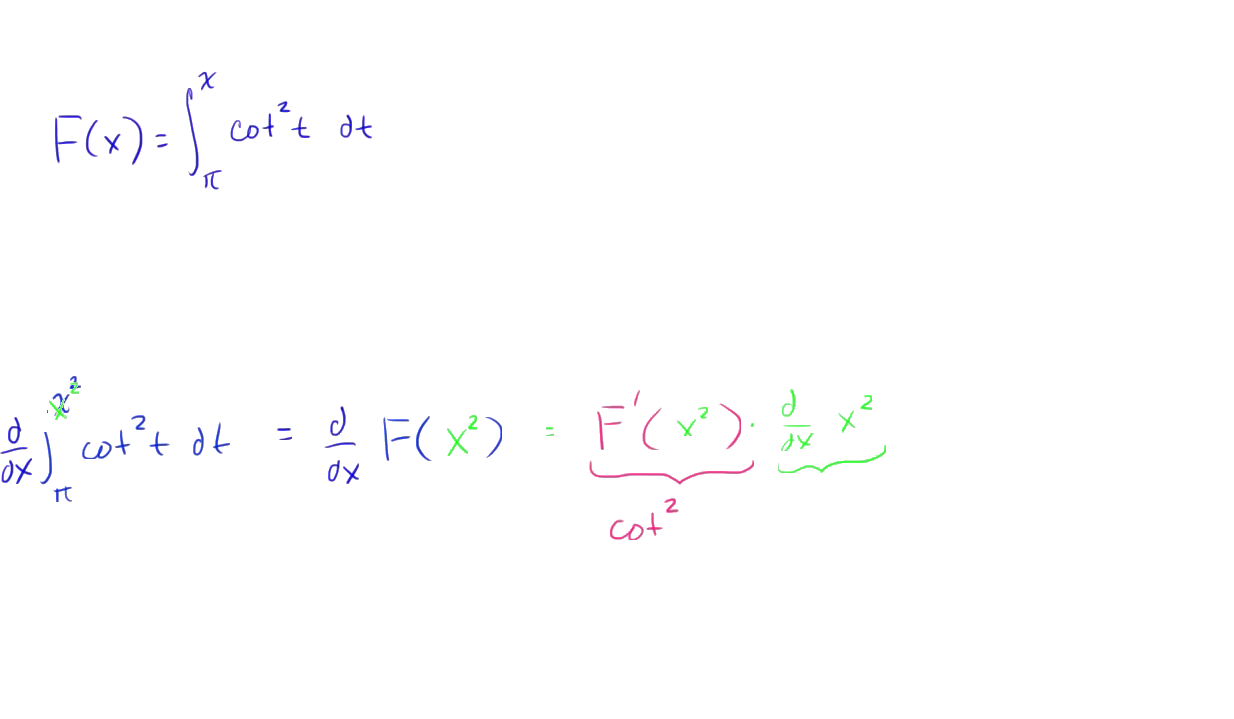 F(x) = ∫_π^x cot² t dt
d/dx ∫_π^{x²} cot² t dt = d/dx F(x²) = F'(x²) · d/dx x²
cot²